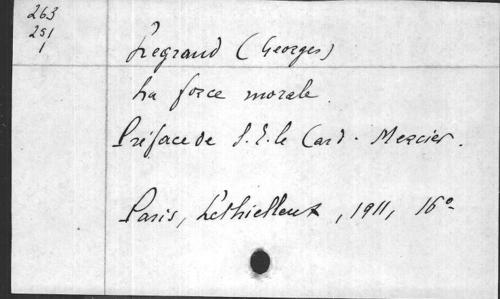 263
251
1
Legrand (Georges)
La force morale.
Préface de S. E. le Card. Mercier.
Paris, Lethielleux, 1911, 16°